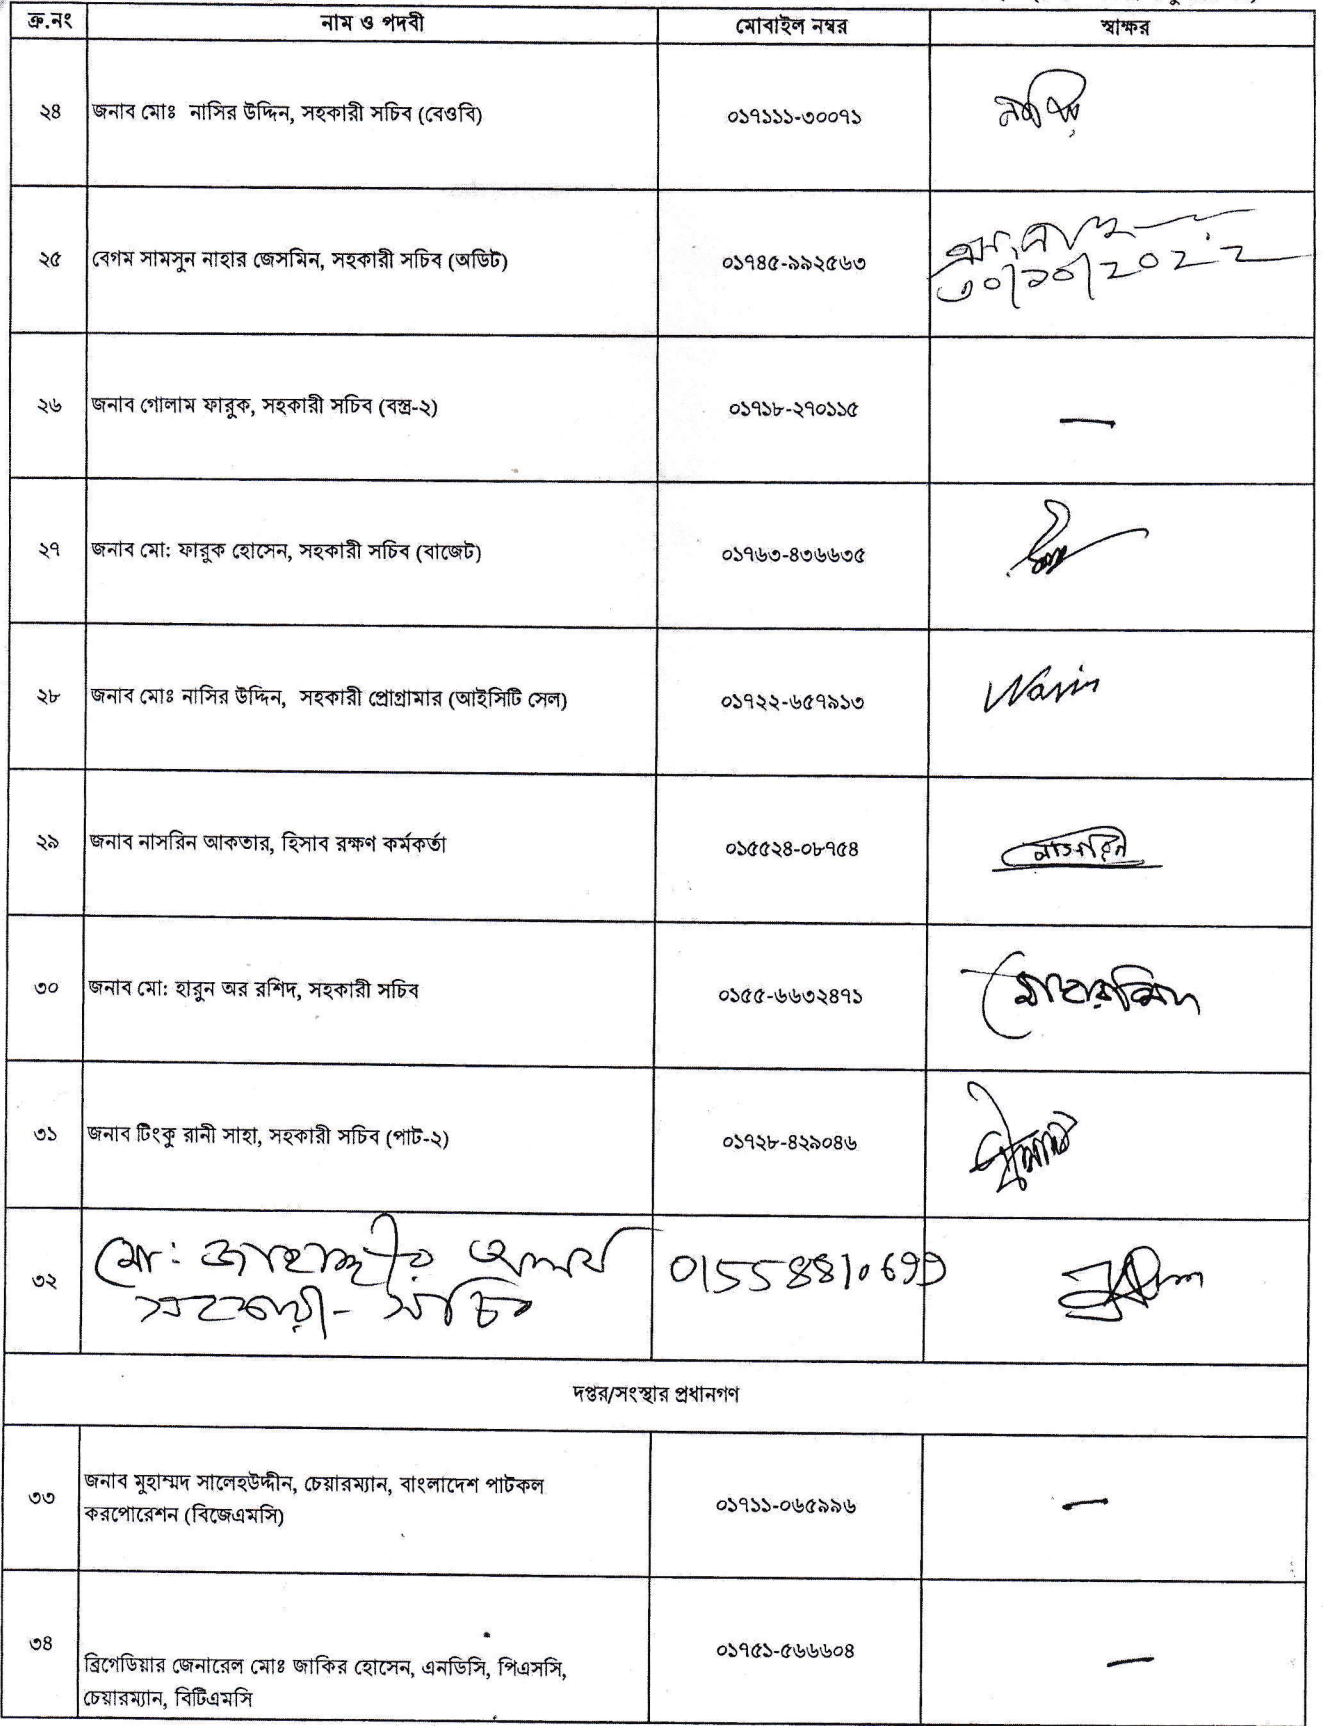 ক্র.নং নাম ও পদবী মোবাইল নম্বর স্বাক্ষর
২৪ জনাব মোঃ নাসির উদ্দিন, সহকারী সচিব (বেওবি) ০১৭১১১-৩০০৭১
২৫ বেগম সামসুন নাহার জেসমিন, সহকারী সচিব (অডিট) ০১৭৪৫-৯৯২৫৬৩
৩০/১০/2022
২৬ জনাব গোলাম ফারুক, সহকারী সচিব (বস্ত্র-২) ০১৭১৮-২৭০১১৫ —
২৭ জনাব মো: ফারুক হোসেন, সহকারী সচিব (বাজেট) ০১৭৬৩-৪৩৬৬৩৫
২৮ জনাব মোঃ নাসির উদ্দিন, সহকারী প্রোগ্রামার (আইসিটি সেল) ০১৭২২-৬৫৭৯১৩ Nasir
২৯ জনাব নাসরিন আকতার, হিসাব রক্ষণ কর্মকর্তা ০১৫৫২৪-০৮৭৫৪ নাসরিন
৩০ জনাব মো: হারুন অর রশিদ, সহকারী সচিব ০১৫৫-৬৬৩২৪৭১
৩১ জনাব টিংকু রানী সাহা, সহকারী সচিব (পাট-২) ০১৭২৮-৪২৯০৪৬
৩২ মো: জাহাঙ্গীর আলম
সহকারী সচিব
দপ্তর/সংস্থার প্রধানগণ
৩৩ জনাব মুহাম্মদ সালেহউদ্দীন, চেয়ারম্যান, বাংলাদেশ পাটকল
করপোরেশন (বিজেএমসি) ০১৭১১-০৬৫৯৯৬ —
৩৪ ব্রিগেডিয়ার জেনারেল মোঃ জাকির হোসেন, এনডিসি, পিএসসি,
চেয়ারম্যান, বিটিএমসি ০১৭৫১-৫৬৬৬০৪ —